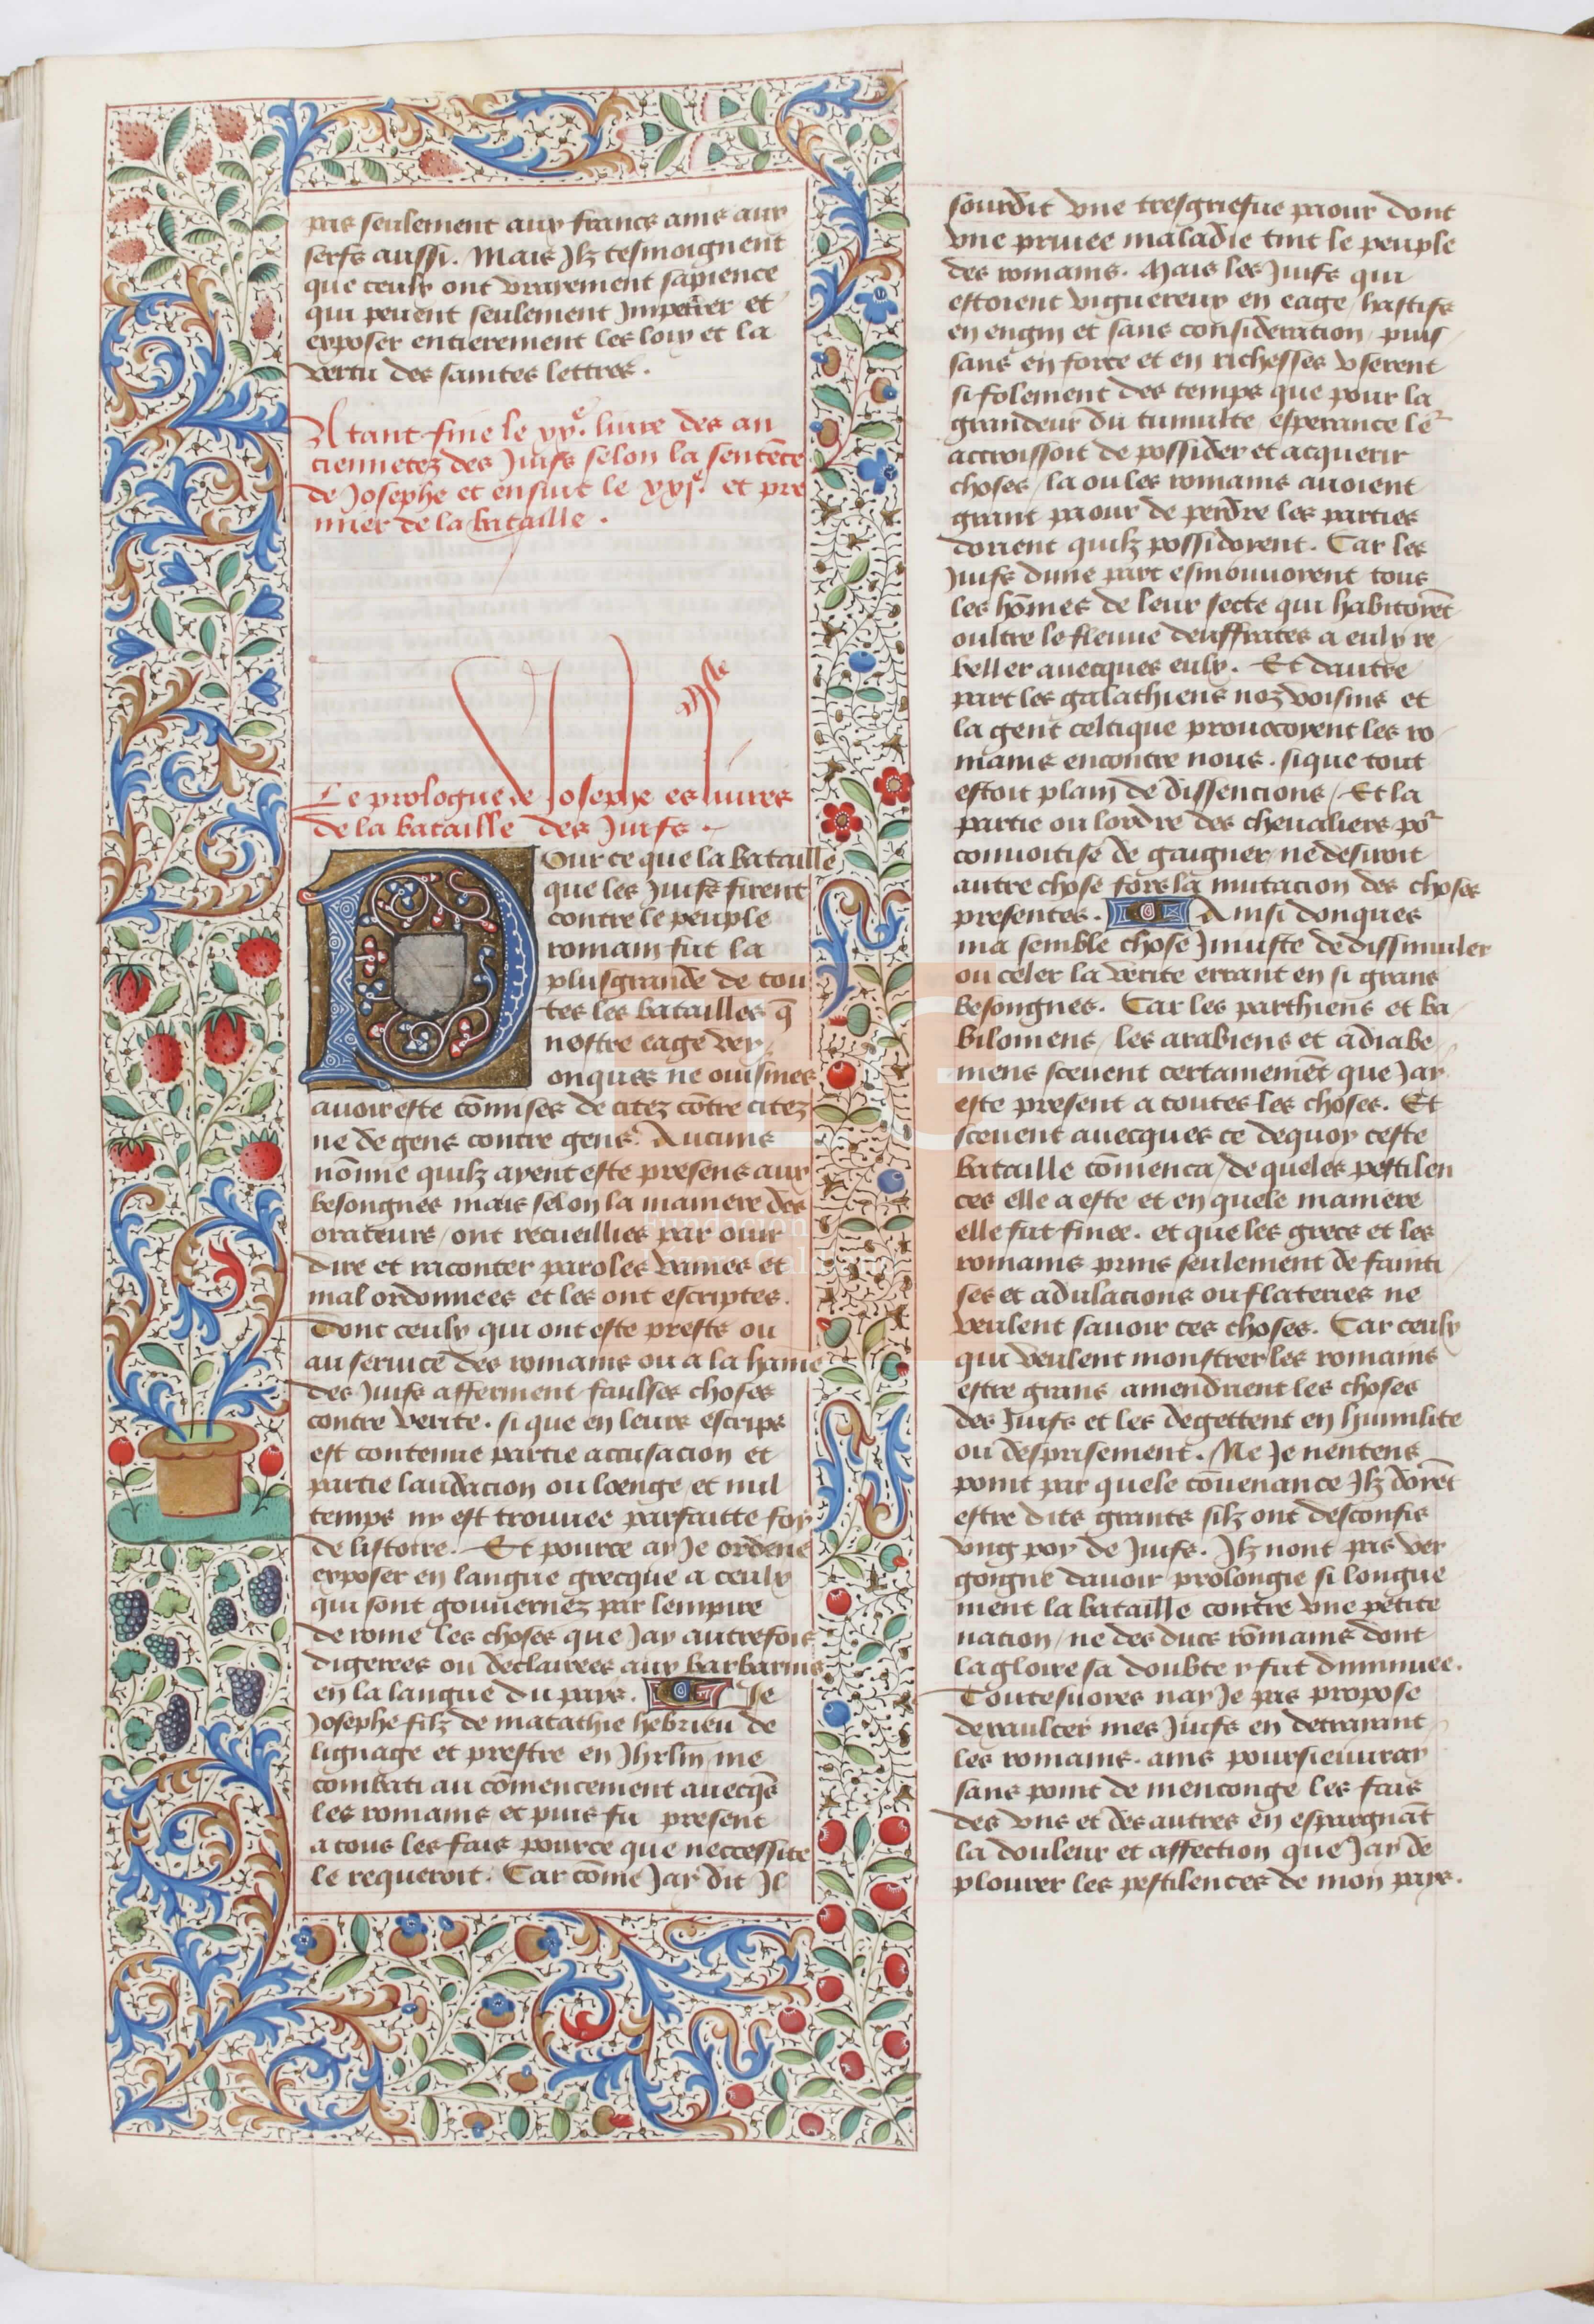 pas seulement aux francs ains aux
serfs aussi. Mais Ilz tesmoignent
que ceulx ont vrayement sapience
qui peuent seulement Impetrer et
exposer entierement les loix et la
vertu des saintes lettres.
Atant fine le xxe. liure des an
ciennetez des Juifs selon la sentēce
de Josephe et ensuit le xxje. et pre
mier de la bataille.
Le prologue de Josephe es liures
de la bataille des Juifs.
Pour ce que la bataille
que les Juifs firent
contre le peuple
romain fut la
plus grande de tou
tes les batailles q̄
nostre eage vey
onques ne ouismes
auoir este cōmises de citez cōtre citez
ne de gens contre gens. Aucuns
nōme quilz ayent este presens aux
besongnes mais selon la maniere des
orateurs / ont recueillies par ouir
dire et raconter paroles vaines et
mal ordonnees et les ont escriptes.
Dont ceulx qui ont este prests ou
au seruice des romains ou a la haine
des Juifs afferment faulses choses
contre verite. si que en leurs escrips
est contenue partie accusacion et
partie laudacion ou loenge / et nul
temps ny est trouuee parfaitte foy
de listoire. Et pource ay Je ordene
exposer en langue grecque a ceulx
qui sont gouuernez par lempire
de rome les choses que Jay autrefois
digerees ou declairees aux barbarins
en la langue du pays. Je
Josephe filz de matathie hebrieu de
lignage et prestre en Jhrlm me
combati au cōmencement auecq̄s
les romains et puis fu present
a tous les fais pource que neccessite
le requeroit. Car cōme Jay dit Il
sourdit vne tresgriefue paour dont
vne priuee maladie tint le peuple
des romains. Mais les Juifs qui
estoient viguereux en eage / hastifs
en engin et sans consideration / puis
sans en force et en richesses vserent
si folement des temps que pour la
grandeur du tumulte esperance le͛
accroissoit de possider et acquerir
choses / la ou les romains auoient
grant paour de perdre les parties
dorient quilz possidoyent. Car les
Juifs dune part esmouuoyent tous
les hōmes de leur secte qui habitoyēt
oultre le fleuue deuffrates a eulx re
beller auecques eulx. Et dautre
part les galathiens noz voisins et
la gent celtique prouocoyent les ro
mains encontre nous. si que tout
estoit plain de dissencions / Et la
partie ou lordre des cheualiers po͛
conuoitise de gaigner ne desiroit
autre chose fors la mutacion des choses
presentes. Ainsi donques
ma semble chose Iniuste de dissimuler
ou celer la verite errant en si grans
besongnes. Car les parthiens et ba
biloniens / les arabiens et adiabe
niens sceuent certainemēt que Jay
este present a toutes les choses. Et
sceuent auecques ce dequoy ceste
bataille cōmenca / de queles pestilen
ces elle a este et en quele maniere
elle fut finee. et que les grecs et les
romains prins seulement de fainti
ses et adulacions ou flateries ne
veulent sauoir ces choses. Car ceulx
qui veulent monstrer les romains
estre grans amendrient les choses
des Juifs et les degettent en humilite
ou desprisement. Ne Je nentens
point par quele cōuenance Ilz doyēt
estre dits grants silz ont desconfis
vng poy de Juifs. Ilz nont pas ver
goigne dauoir prolongie si longue
ment la bataille contre vne petite
nacion / ne des ducs romains dont
la gloire sa doubte y fut diminuee.
Toutesuoyes nay Je pas propose
dexaulcer mes Juifs en detrayant
les romains. ains poursieuuray
sans point de menconge les fais
des vns et des autres en espargnāt
la douleur et affection que Jay de
plourer les pestilences de mon pays.
Fundación